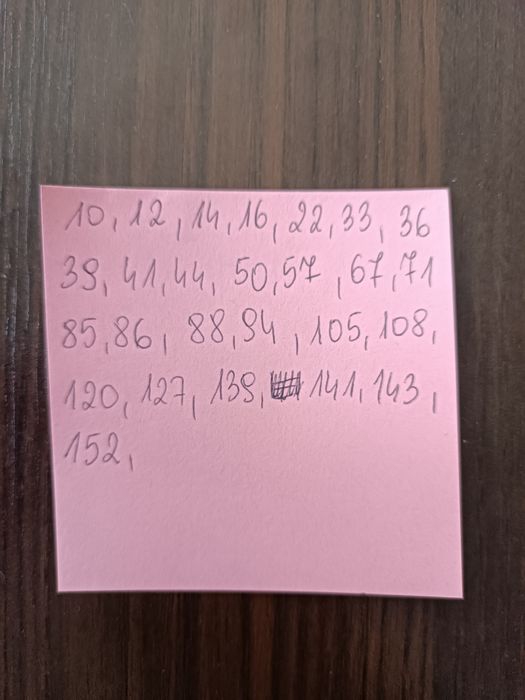 10, 12, 14, 16, 22, 33, 36
39, 41, 44, 50, 57, 67, 71
85, 86, 88, 94, 105, 108,
120, 127, 139, 141, 143,
152,